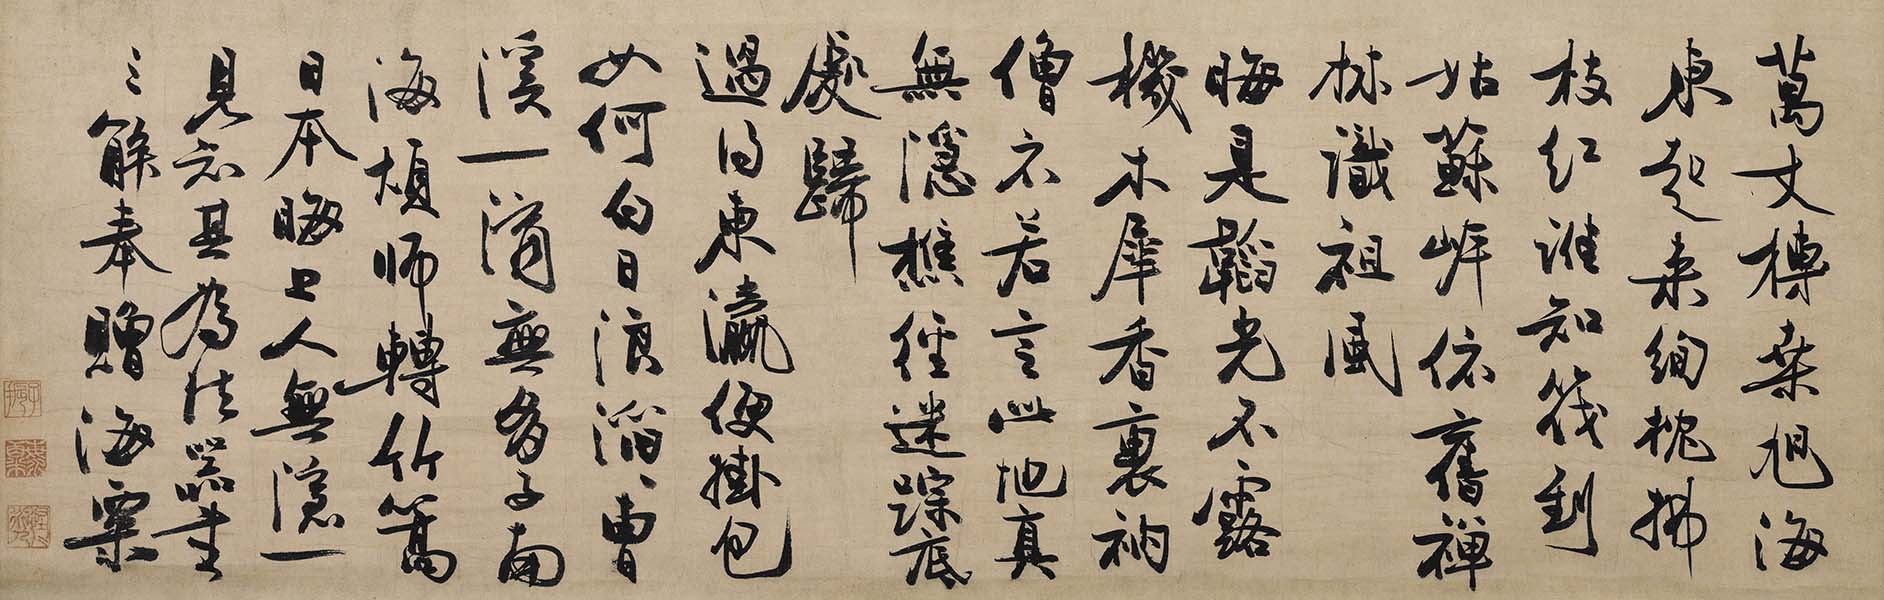 萬丈榑桒旭海
東起来絢拂
枝紅誰知筏到
姑蘇岸依舊禅
林識祖風
晦是韜光不露
機木犀香裏衲
僧衣若言此地真
無隱樵徑迷踪底
處歸
過得東瀛便掛包
如何白日浪滔〻曹
溪一滴無多子南
海煩師轉竹篙
日本晦上人無隱一
見知其為法器書
三解奉贈海粟